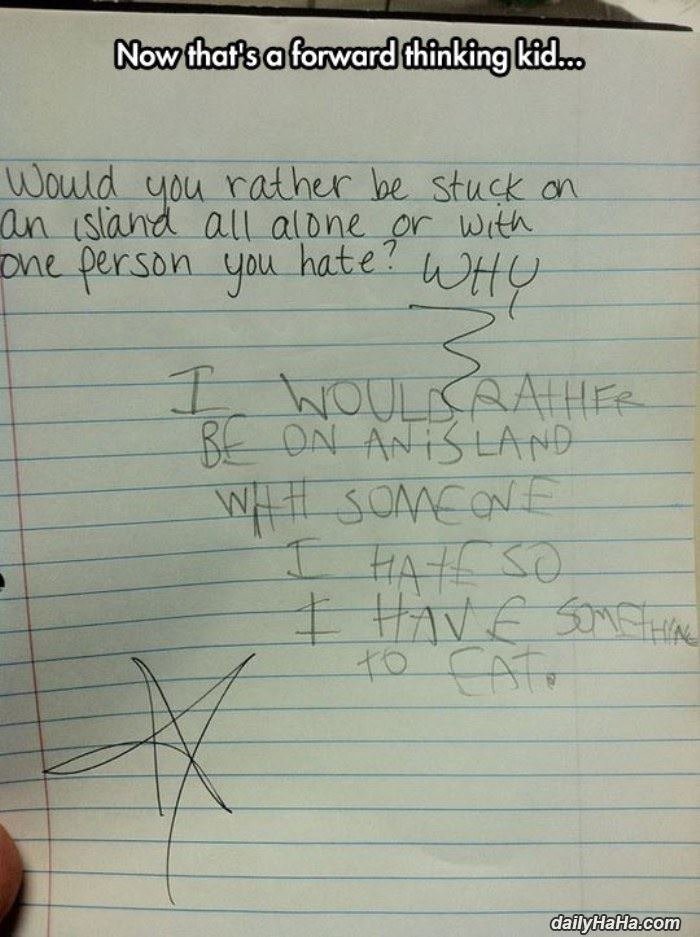 Now that's a forward thinking kid...
Would you rather be stuck on
an island all alone or with
one person you hate? WHY
I WOULD RATHER
BE ON AN iSLAND
WITH SOMEONE
I HATE SO
I HAVE SOMETHING
TO EAT.
dailyHaHa.com